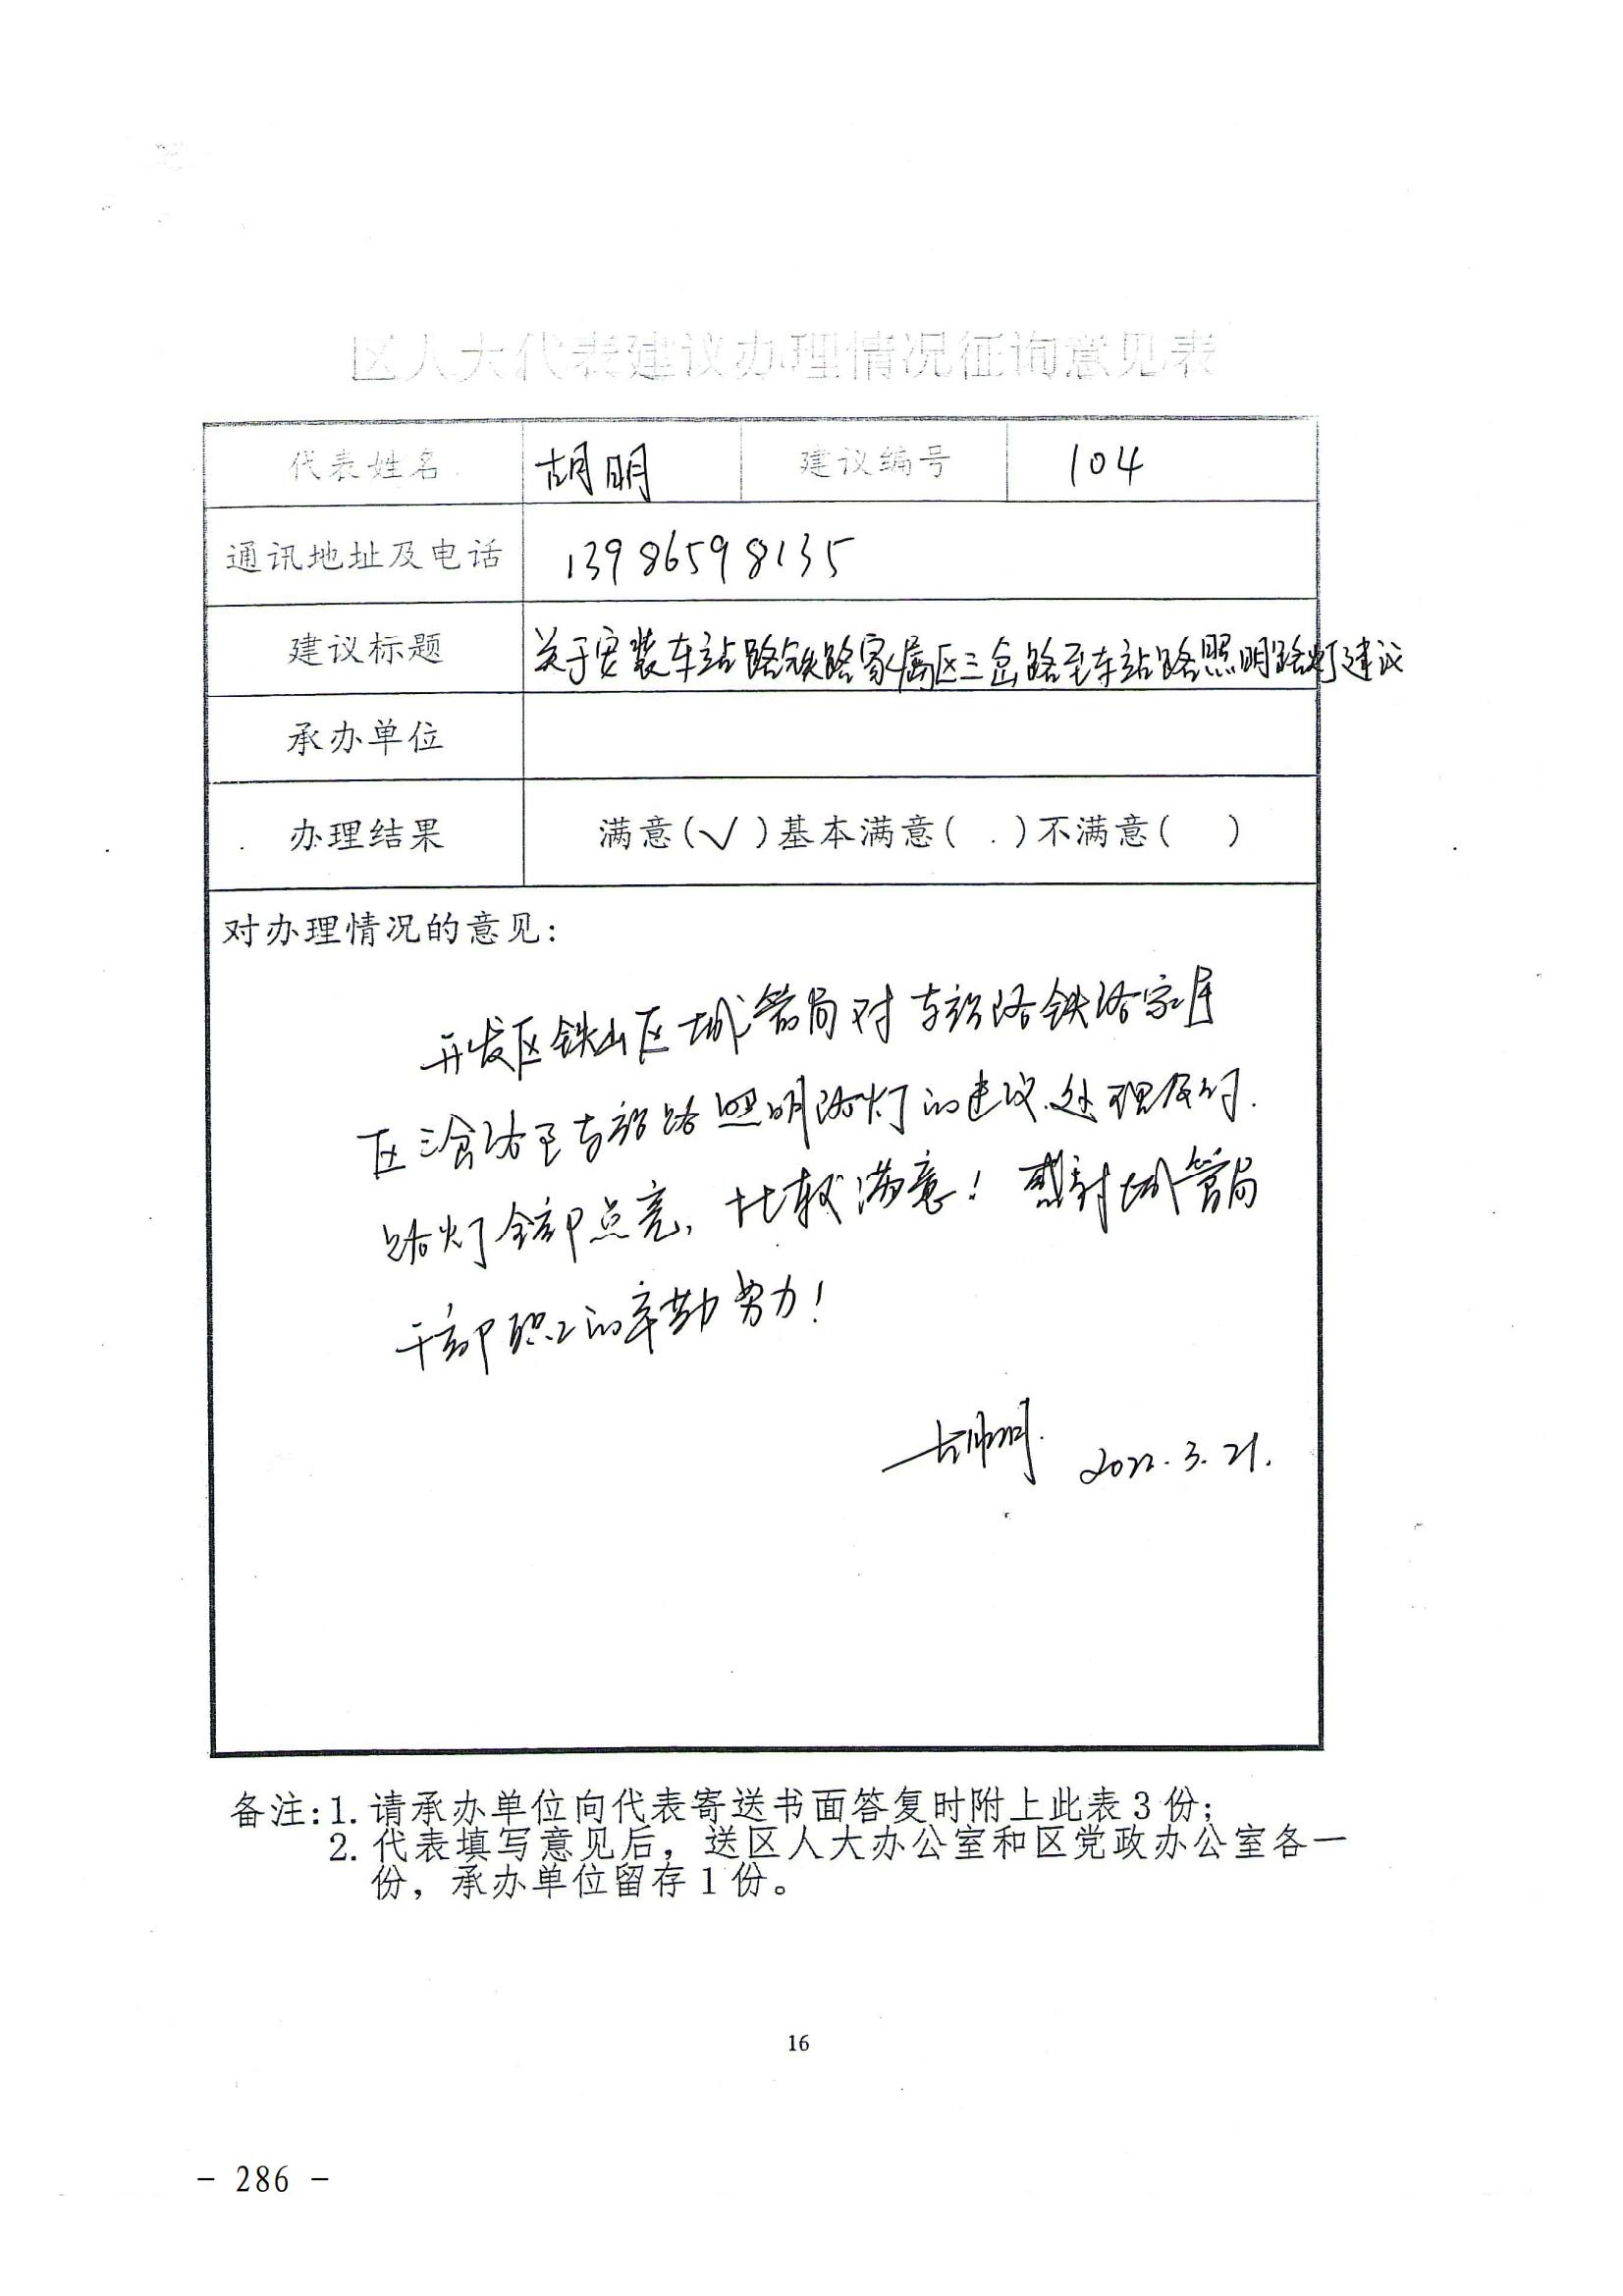 区人大代表建议办理情况征询意见表
代表姓名 胡明 建议编号 104
通讯地址及电话 13986598135
建议标题 关于安装车站路铁路家属区三岔路至车站路照明路灯建议
承办单位
办理结果 满意(√)基本满意( )不满意( )
对办理情况的意见:
开发区铁山区城管局对车站路铁路家属
区三岔路至车站路照明路灯的建议处理及时.
路灯全部点亮, 比较满意! 感谢城管局
干部职工的辛勤努力!
胡明 2022.3.21.
备注:1. 请承办单位向代表寄送书面答复时附上此表3份;
2. 代表填写意见后, 送区人大办公室和区党政办公室各一
份, 承办单位留存1份。
16
- 286 -